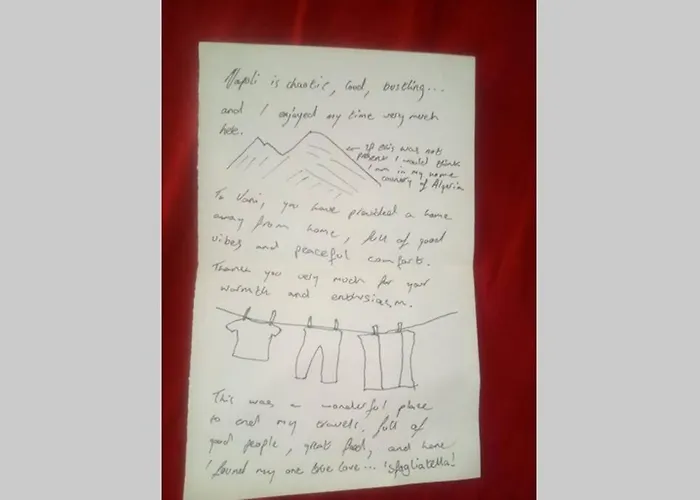 Napoli is chaotic, loud, bustling...
and I enjoyed my time very much
here.
← If this was not
present I would think
I am in my home
country of Algeria
To Vani, you have provided a home
away from home, full of good
vibes and peaceful comforts.
Thank you very much for your
warmth and enthusiasm.
This was a wonderful place
to end my travels. full of
good people, great food, and where
I found my one true love... 'sfogliatella!